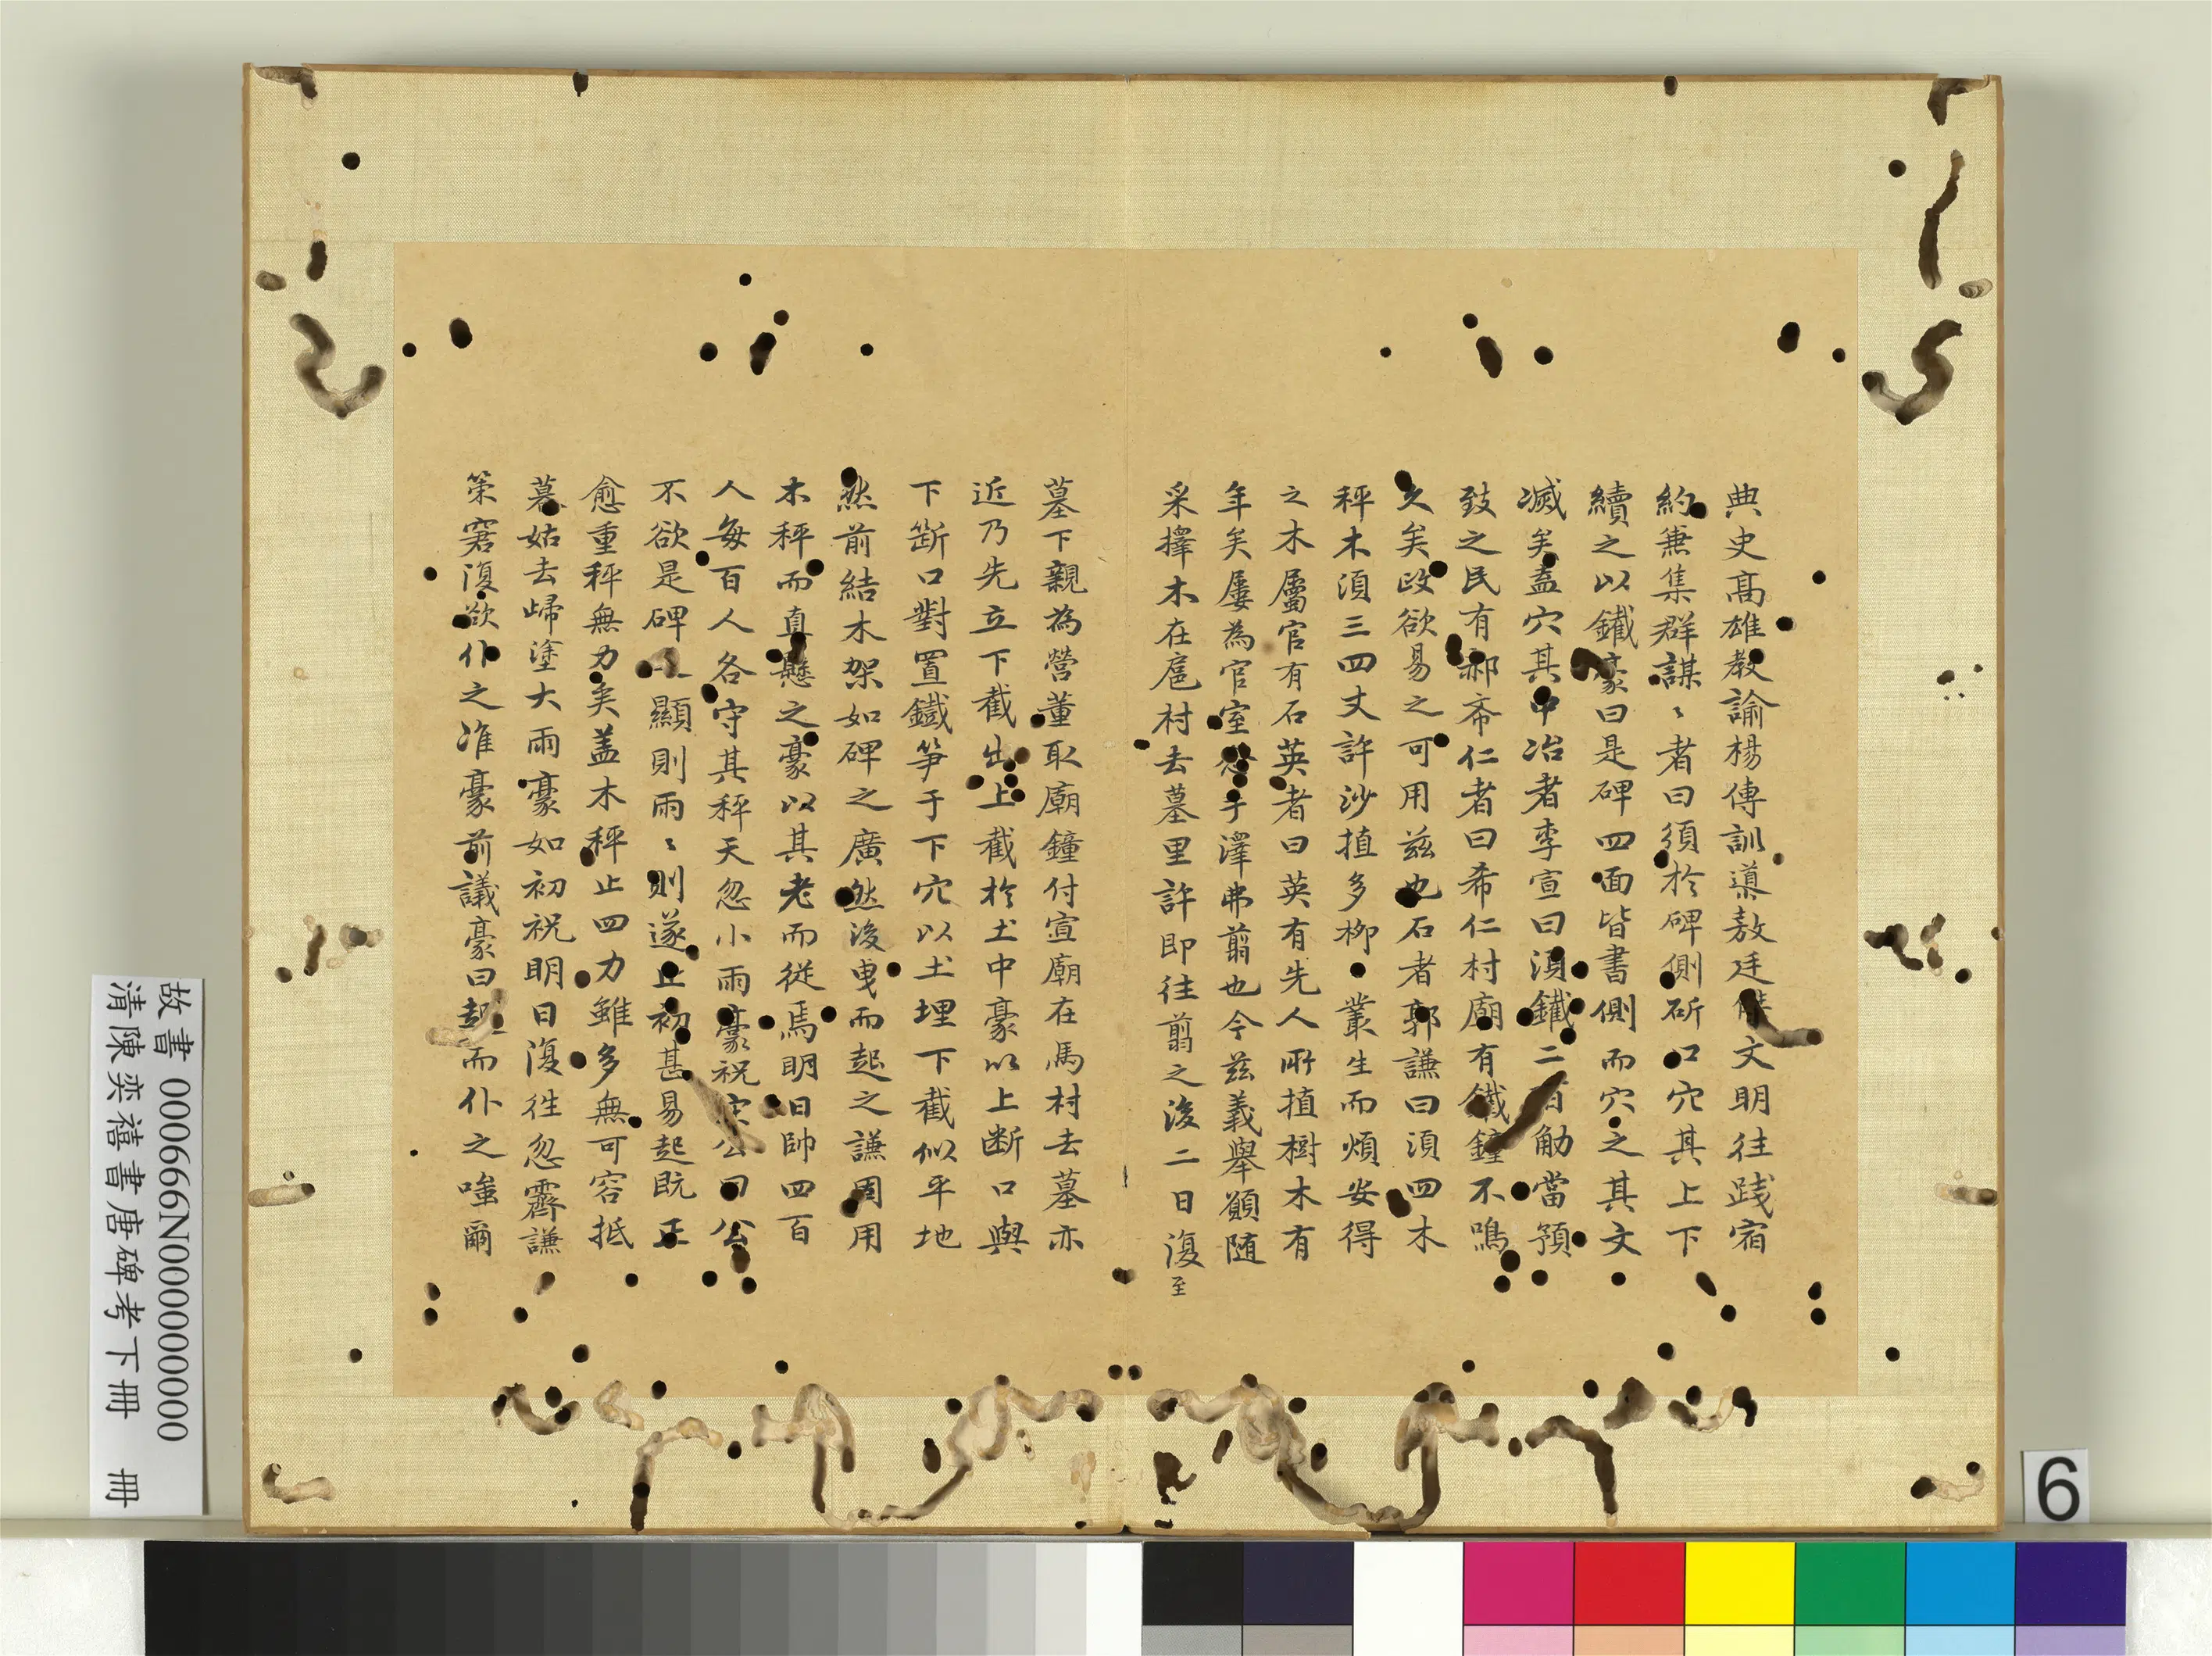 典史高雄教諭楊傳訓導敖廷文明往踐宿
約兼集群謀〻者曰須於碑側斫口穴其上下
續之以鐵豪曰是碑四面皆書側而穴之其文
滅矣盍穴其中冶者李宣曰須鐵二百觔當預
致之民有郝希仁者曰希仁村廟有鐵鐘不鳴
久矣政欲易之可用茲也石者郭謙曰須四木
秤木須三四丈許沙植多柳叢生而煩安得
之木屬官有石英者曰英有先人所植樹木有
年矣屢為官室于澤弗翦也今茲義舉願随
采擇木在扈村去墓里許即往翦之後二日復至
墓下親為營董取廟鐘付宣廟在馬村去墓亦
近乃先立下截出上截於土中豪以上断口與
下斷口對置鐵笋于下穴以土埋下截似平地
然前結木架如碑之廣然後曳而起之謙周用
木秤而直懸之豪以其老而従焉明日帥四百
人每百人各守其秤天忽小雨豪祝公曰公
不欲是碑顯則雨〻則遂止初甚易起既正
愈重秤無力矣盖木秤止四力雖多無可容抵
暮姑去歸塗大雨豪如初祝明日復徃忽霽謙
策窘復欲仆之准豪前議豪曰起而仆之嗤爾
故書 000666N000000000
清陳奕禧書唐碑考下冊 冊
6